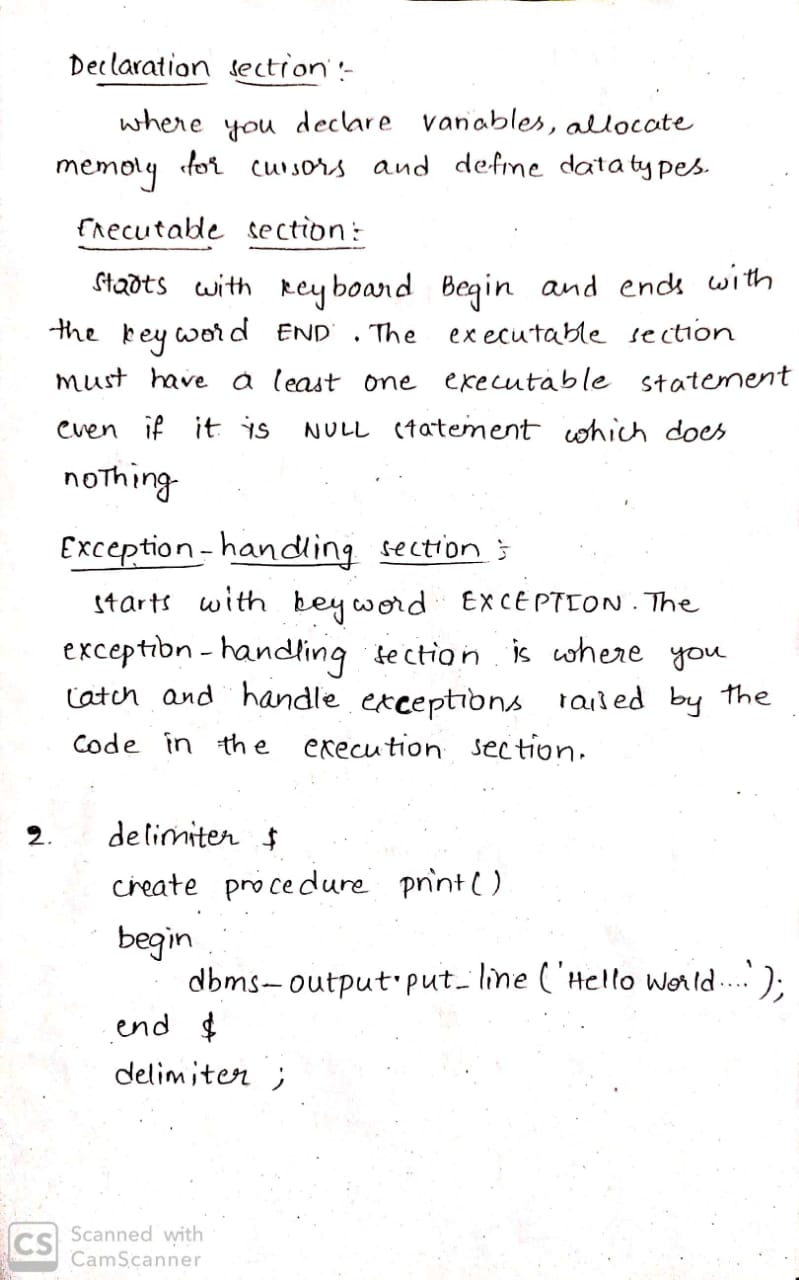 Declaration section :-
where you declare variables, allocate
memory for cursors and define datatypes.
Executable section :
Starts with keyboard Begin and ends with
the keyword END . The executable section
must have a least one executable statement
even if it is NULL statement which does
nothing
Exception-handling section :
starts with keyword EXCEPTION. The
exception-handling section is where you
catch and handle exceptions raised by the
code in the execution section.
2. delimiter $
create procedure print()
begin
dbms_output.put_line ('Hello World....');
end $
delimiter ;
CS Scanned with
CamScanner